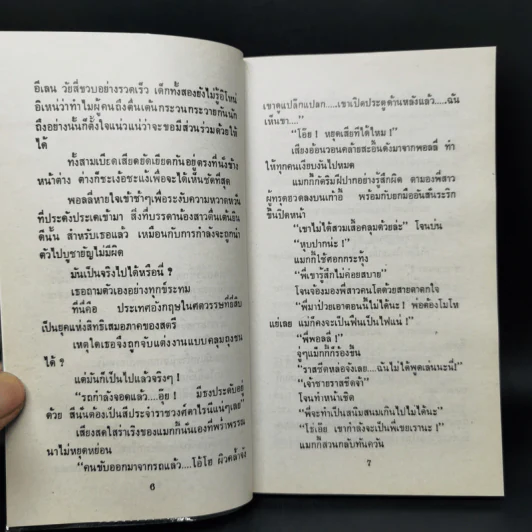 อีเลน วัยสี่ขวบอย่างรวดเร็ว เด็กทั้งสองยังไม่รู้อีโหน่
อีเหน่ว่าทำไมผู้คนถึงตื่นเต้นกระวนกระวายกันนัก
ถึงอย่างนั้นก็ตั้งใจแน่วแน่ว่าจะขอมีส่วนร่วมด้วยให้
ได้
ทั้งสามเบียดเสียดยัดเยียดกันอยู่ตรงที่นั่งข้าง
หน้าต่าง ต่างก็ชะเง้อชะแง้เพื่อจะได้เห็นชัดที่สุด
พอลลี่หายใจเข้าช้าๆเพื่อระงับความหวาดหวั่น
ที่ประดังประเดเข้ามา สิ่งที่บรรดาน้องสาวตื่นเต้นยิน
ดีนั้น สำหรับเธอแล้ว เหมือนกับการกำลังจะถูกนำ
ตัวไปบูชายัญไม่มีผิด
มันเป็นจริงไปได้หรือนี่ ?
เธอถามตัวเองอย่างทุกข์ระทม
ที่นี่คือ ประเทศอังกฤษในศตวรรษที่ยี่สิบ
เป็นยุคแห่งสิทธิเสมอภาคของสตรี
เหตุใดเธอจึงถูกจับแต่งงานแบบคลุมถุงชน
ได้ ?
แต่มันก็เป็นไปแล้วจริงๆ !
"รถกำลังจอดแล้ว....อุ๊ย ! มีธงประดับอยู่
ด้วย สีนั้นต้องเป็นสีประจำราชวงศ์ดาไรน์แน่ๆเลย"
เสียงสดใสร่าเริงของแมกกี้นั่นเองที่พร่ำพรรณ
นาไม่หยุดหย่อน
"คนขับออกมาจากรถแล้ว....โอ้โฮ ผิวคล้ำจัง
6
เขาดูแปล๊กแปลก....เขาเปิดประตูด้านหลังแล้ว....ฉัน
เห็นขา...."
"โอ๊ย ! หยุดเสียทีได้ไหม !"
เสียงอ้อนวอนคล้ายสะอื้นดังมาจากพอลลี่ ทำ
ให้ทุกคนเงียบงันไปหมด
แมกกี้กัดริมฝีปากอย่างรู้สึกผิด ตามองพี่สาว
ผู้ทรุดฮวดลงบนเก้าอี้ พร้อมกับยกมืออันสั่นระริก
ขึ้นปิดหน้า
"เขาไม่ได้สวมเสื้อคลุมด้วยล่ะ" โจนบ่น
"หุบปากน่ะ !"
แมกกี้ใช้ศอกกระทุ้ง
"พี่เขารู้สึกไม่ค่อยสบาย"
โจนจ้องมองพี่สาวคนโตด้วยสายตาตกใจ
"พี่มาป่วยเอาตอนนี้ไม่ได้นะ ! พ่อต้องโมโห
แย่เลย แม่ก็คงจะเป็นฟืนเป็นไฟแน่ !"
"พี่พอลลี่ !"
จู่ๆแมกกี้ก็ร้องขึ้น
"ราสชิดหล่อจังเลย....ฉันไม่ได้พูดเล่นนะนี่!"
"เจ้าชายราสชิดจ้า"
โจนทำหน้าเชิด
"พี่จะทำเป็นสนิมสนมเกินไปไม่ได้นะ"
"โธ่เอ๊ย เขากำลังจะเป็นพี่เขยเรานะ !"
แมกกี้สวนกลับทันควัน
7